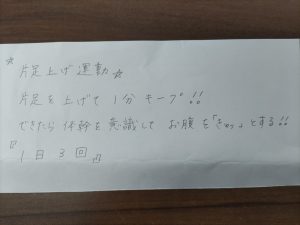 ☆片足上げ運動☆
片足を上げて1分キープ!!
できたら体幹を意識してお腹を「きゅっ」とする!!
『1日3回』